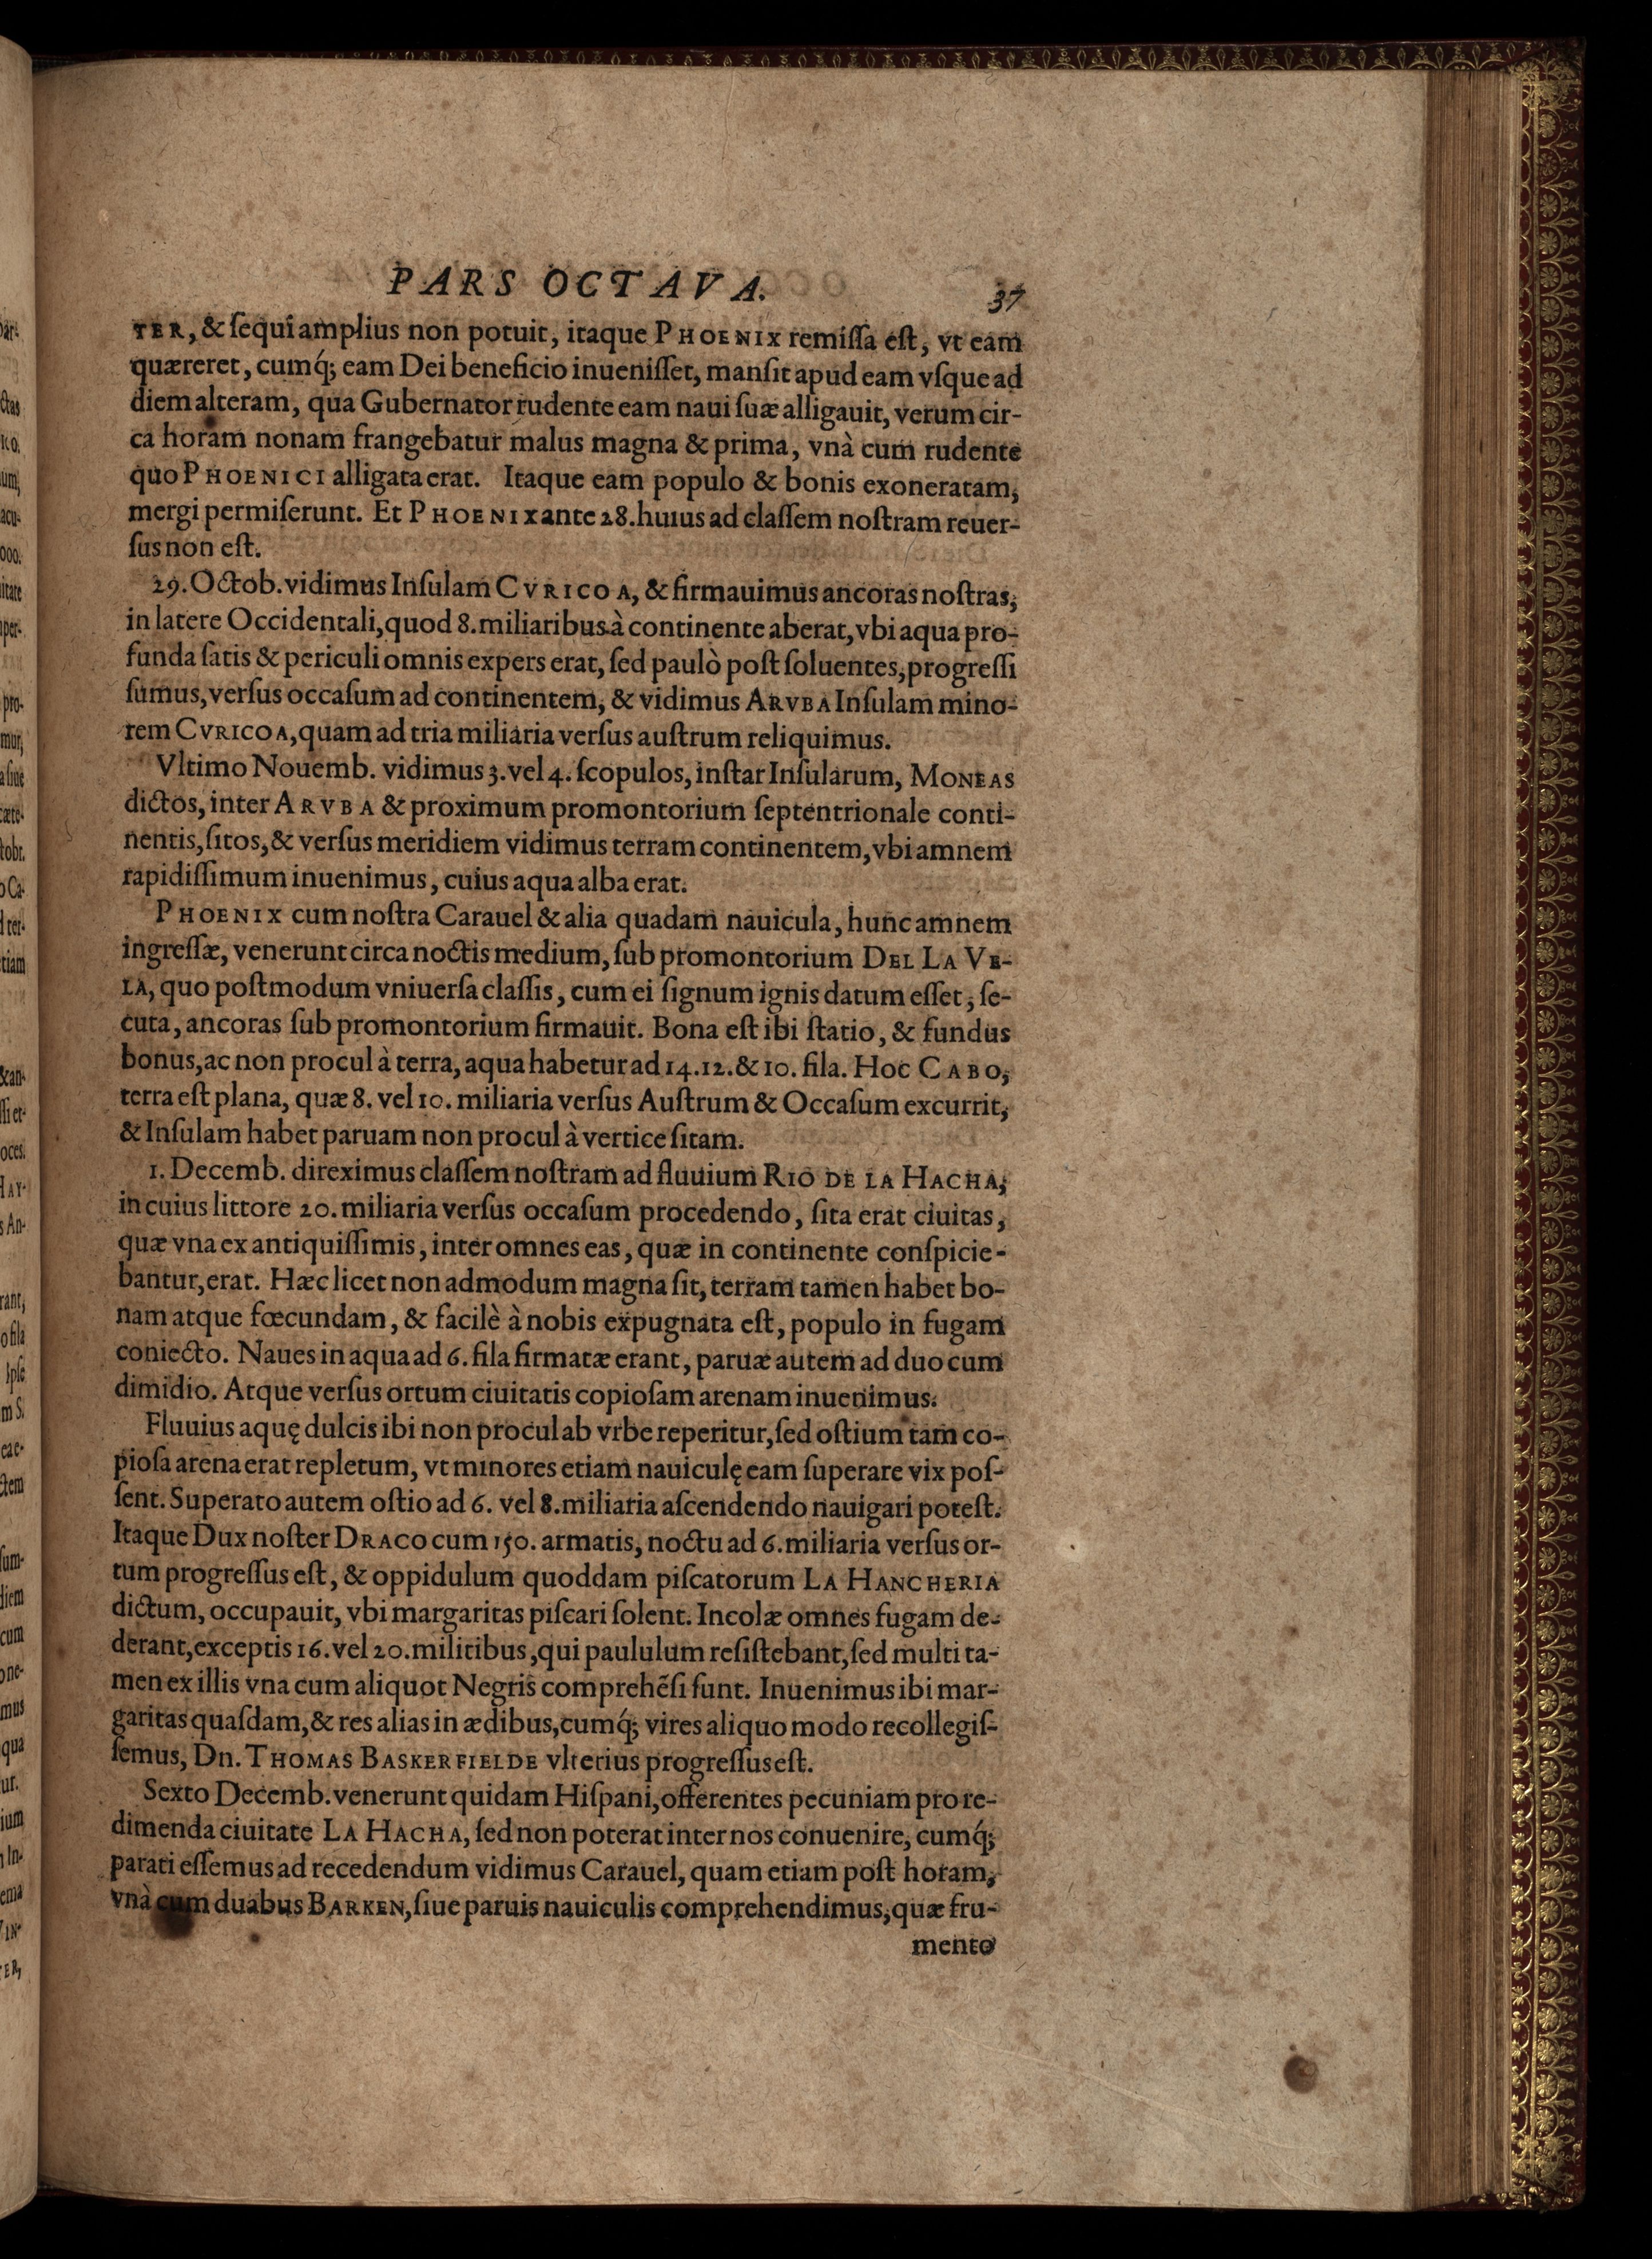 PARS OCTAVA. 37
TER, & ſequi amplius non potuit, itaque PHOENIX remiſſa eſt, vt eam
quæreret, cumq́; eam Dei beneficio inueniſſet, manſit apud eam vſque ad
diem alteram, qua Gubernator rudente eam naui ſuæ alligauit, verum cir-
ca horam nonam frangebatur malus magna & prima, vnà cum rudente
quo PHOENICI alligata erat. Itaque eam populo & bonis exoneratam,
mergi permiſerunt. Et PHOENIX ante 28. huius ad claſſem noſtram reuer-
ſus non eſt.
29. Octob. vidimus Inſulam CVRICOA, & firmauimus ancoras noſtras,
in latere Occidentali, quod 8. miliaribus à continente aberat, vbi aqua pro-
funda ſatis & periculi omnis expers erat, ſed paulò poſt ſoluentes, progreſſi
ſumus, verſus occaſum ad continentem, & vidimus ARVBA Inſulam mino-
rem CVRICOA, quam ad tria miliaria verſus auſtrum reliquimus.
Vltimo Nouemb. vidimus 3. vel 4. ſcopulos, inſtar Inſularum, MONEAS
dictos, inter ARVBA & proximum promontorium ſeptentrionale conti-
nentis, ſitos, & verſus meridiem vidimus terram continentem, vbi amnem
rapidiſſimum inuenimus, cuius aqua alba erat.
PHOENIX cum noſtra Carauel & alia quadam nauicula, hunc amnem
ingreſſæ, venerunt circa noctis medium, ſub promontorium DEL LA VE-
LA, quo poſtmodum vniuerſa claſſis, cum ei ſignum ignis datum eſſet, ſe-
cuta, ancoras ſub promontorium firmauit. Bona eſt ibi ſtatio, & fundus
bonus, ac non procul à terra, aqua habetur ad 14. 12. & 10. fila. Hoc CABO,
terra eſt plana, quæ 8. vel 10. miliaria verſus Auſtrum & Occaſum excurrit,
& Inſulam habet paruam non procul à vertice ſitam.
1. Decemb. direximus claſſem noſtram ad fluuium RIO DE LA HACHA,
in cuius littore 20. miliaria verſus occaſum procedendo, ſita erat ciuitas,
quæ vna ex antiquiſſimis, inter omnes eas, quæ in continente conſpicie-
bantur, erat. Hæc licet non admodum magna ſit, terram tamen habet bo-
nam atque fœcundam, & facilè à nobis expugnata eſt, populo in fugam
coniecto. Naues in aqua ad 6. fila firmatæ erant, paruæ autem ad duo cum
dimidio. Atque verſus ortum ciuitatis copioſam arenam inuenimus.
Fluuius aquę dulcis ibi non procul ab vrbe reperitur, ſed oſtium tam co-
pioſa arena erat repletum, vt minores etiam nauiculę eam ſuperare vix poſ-
ſent. Superato autem oſtio ad 6. vel 8. miliaria aſcendendo nauigari poteſt.
Itaque Dux noſter DRACO cum 150. armatis, noctu ad 6. miliaria verſus or-
tum progreſſus eſt, & oppidulum quoddam piſcatorum LA HANCHERIA
dictum, occupauit, vbi margaritas piſcari ſolent. Incolæ omnes fugam de-
derant, exceptis 16. vel 20. militibus, qui paululum reſiſtebant, ſed multi ta-
men ex illis vna cum aliquot Negris comprehẽſi ſunt. Inuenimus ibi mar-
garitas quaſdam, & res alias in ædibus, cumq́; vires aliquo modo recollegiſ-
ſemus, Dn. THOMAS BASKERFIELDE vlterius progreſſus eſt.
Sexto Decemb. venerunt quidam Hiſpani, offerentes pecuniam pro re-
dimenda ciuitate LA HACHA, ſed non poterat inter nos conuenire, cumq́;
parati eſſemus ad recedendum vidimus Carauel, quam etiam poſt horam,
vnà cum duabus BARKEN, ſiue paruis nauiculis comprehendimus, quæ fru-
mento